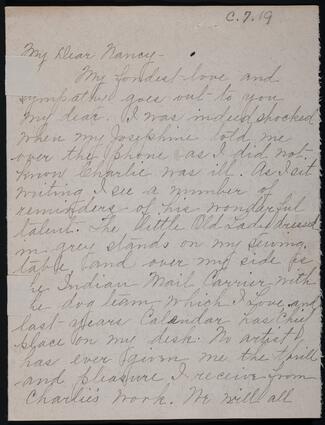 C.7.19
My Dear Nancy-
My fondest love and
sympathy goes out to you
my dear. I was indeed shocked
when my Josephine told me
over the phone as I did not
know Charlie was ill. As I sit
writing I see a number of
reminders of his wonderful
talent. The little Old Lady dressed
in grey stands on my sewing
table and over my side is
he Indian Mail Carrier with
he dog team which I Love and
last years Calendar has Chief
place on my desk. No artist
has ever given me the thrill
and pleasure I receive from
Charlie's work. We will all